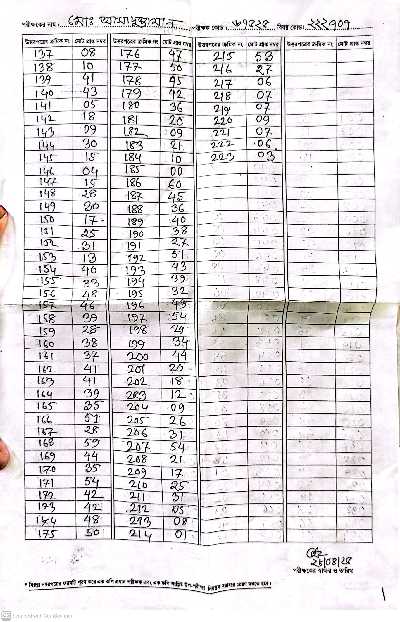 পরীক্ষকের নাম : মোঃ আসাদুজ্জামান পরীক্ষক কোড : ৬৭২২২ বিষয় কোড: ২২২৭০৭
উত্তরপত্রের ক্রমিক নং মোট প্রাপ্ত নম্বর উত্তরপত্রের ক্রমিক নং মোট প্রাপ্ত নম্বর উত্তরপত্রের ক্রমিক নং মোট প্রাপ্ত নম্বর উত্তরপত্রের ক্রমিক নং মোট প্রাপ্ত নম্বর
137 08 176 47 215 53
138 10 177 50 216 27
139 41 178 45 217 06
140 43 179 42 218 07
141 05 180 36 219 07
142 18 181 20 220 09
143 29 182 09 221 07
144 30 183 21 222 06
145 15 184 10 223 03
146 04 185 00
147 15 186 60
148 28 187 45
149 30 188 36
150 17 189 40
151 25 190 38
152 31 191 27
153 13 192 51
154 40 193 43
155 33 194 39
156 48 195 32
157 46 196 43
158 39 197 54
159 28 198 29
160 38 199 34
161 37 200 44
162 41 201 20
163 41 202 18
164 39 203 12
165 35 204 09
166 51 205 26
167 28 206 31
168 59 207 54
169 44 208 21
170 35 209 17
171 54 210 25
172 42 211 31
173 42 212 05
174 48 213 08
175 50 214 01
পরীক্ষকের স্বাক্ষর ও তারিখ
1